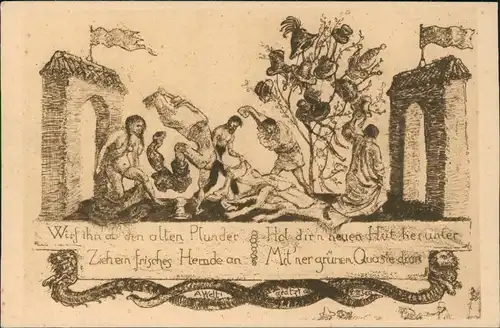 Wirf ihn ab den alten Plunder
Hol dir'n neuen Hut herunter
Zieh ein frisches Hemde an
Mit 'ner grünen Quaste dran